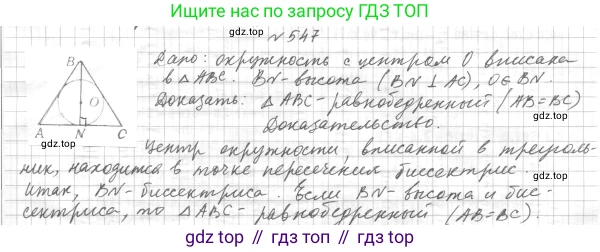 Ищите нас по запросу
ГДЗ ТОП
№547
gdz.top
Дано: окружность с центром O вписана
в △ABC. BN-высота (BN ⊥ AC), O∈BN.
gdz.top
Доказать: △ABC-равнобедренный (AB=BC)
Доказательство.
B
O
A N C
gdz.top
Центр окружности, вписанной в треуголь-
ник, находится в точке пересечения биссектрис.
Итак, BN-биссектриса. Если BN-высота и бис-
сектриса, то △ABC-равнобедренный (AB=BC).
gdz.top
gdz.top // gdz.top // gdz.top